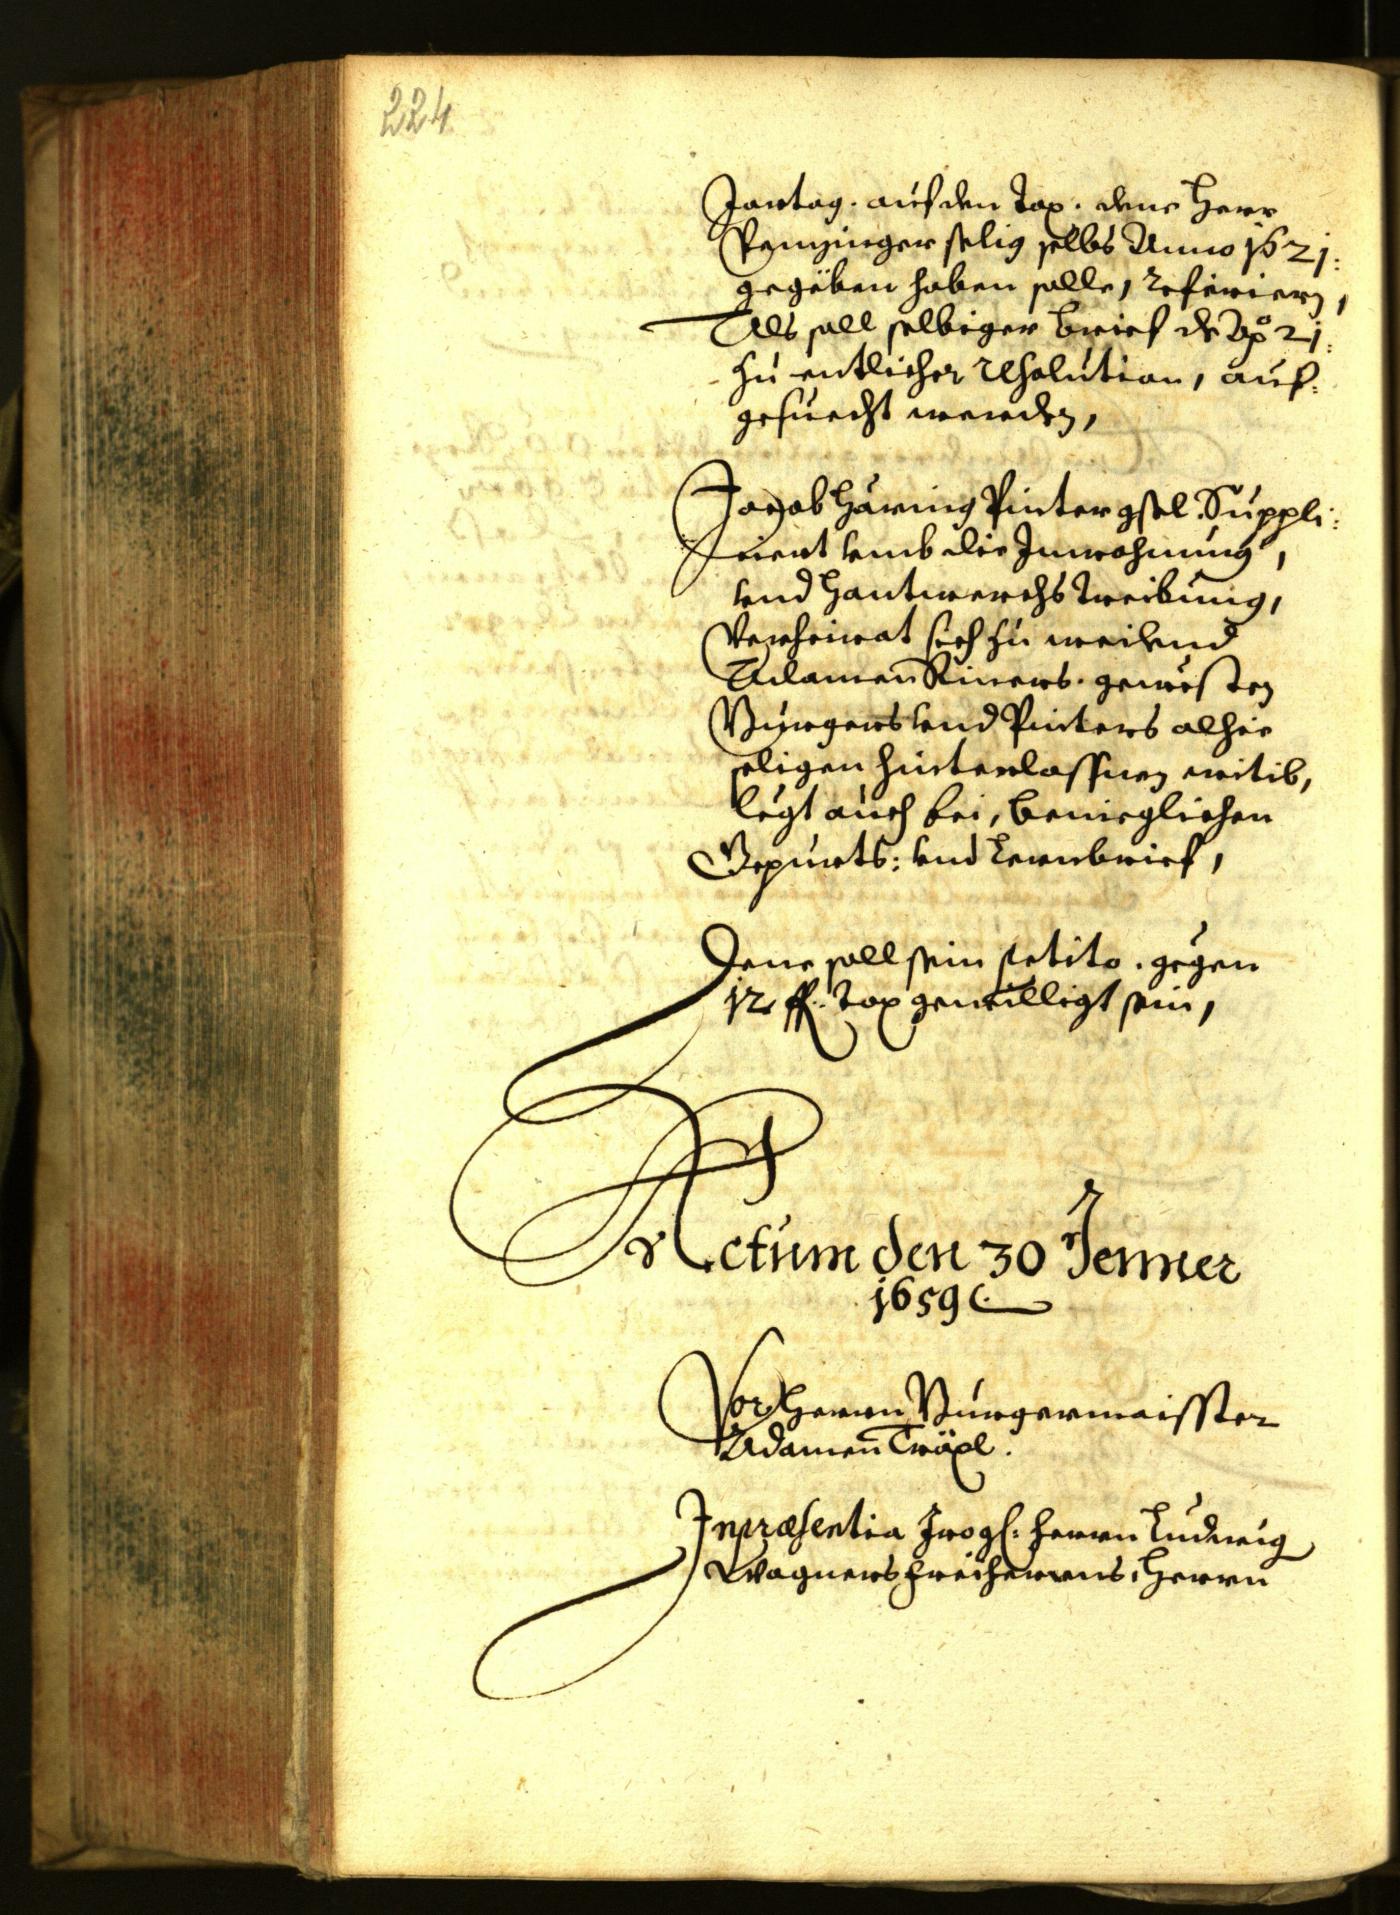 224
Jartag. auf den Tax. dene Herr
Penzinger selig selbs Anno 1621:
gegeben haben solle, referiern,
Als soll selbiger brief de Aõ 21:
zu entlicher resolution, auf:
gesuecht werden,
Jacob Häring Pinter gsel. Suppli:
ciert umb die Inwohnung,
und Hantwerchs Treibung,
Verheirat sich zu weilend
Adamen Riners. gewesten
Burgers und Pinters alhie
seligen hinterlassnen witib,
legt auch bei,
Gepurts: und Lernbrief,
Deme soll sein petito. gegen
12 fl. Tax gewilligt sein,
Actum den 30 Jenner
1659
Vor Herrn Burgermaisster
Adamen Träxl.
In præsentia Herrn Ludwig
Wagners Freiherrns, Herrn